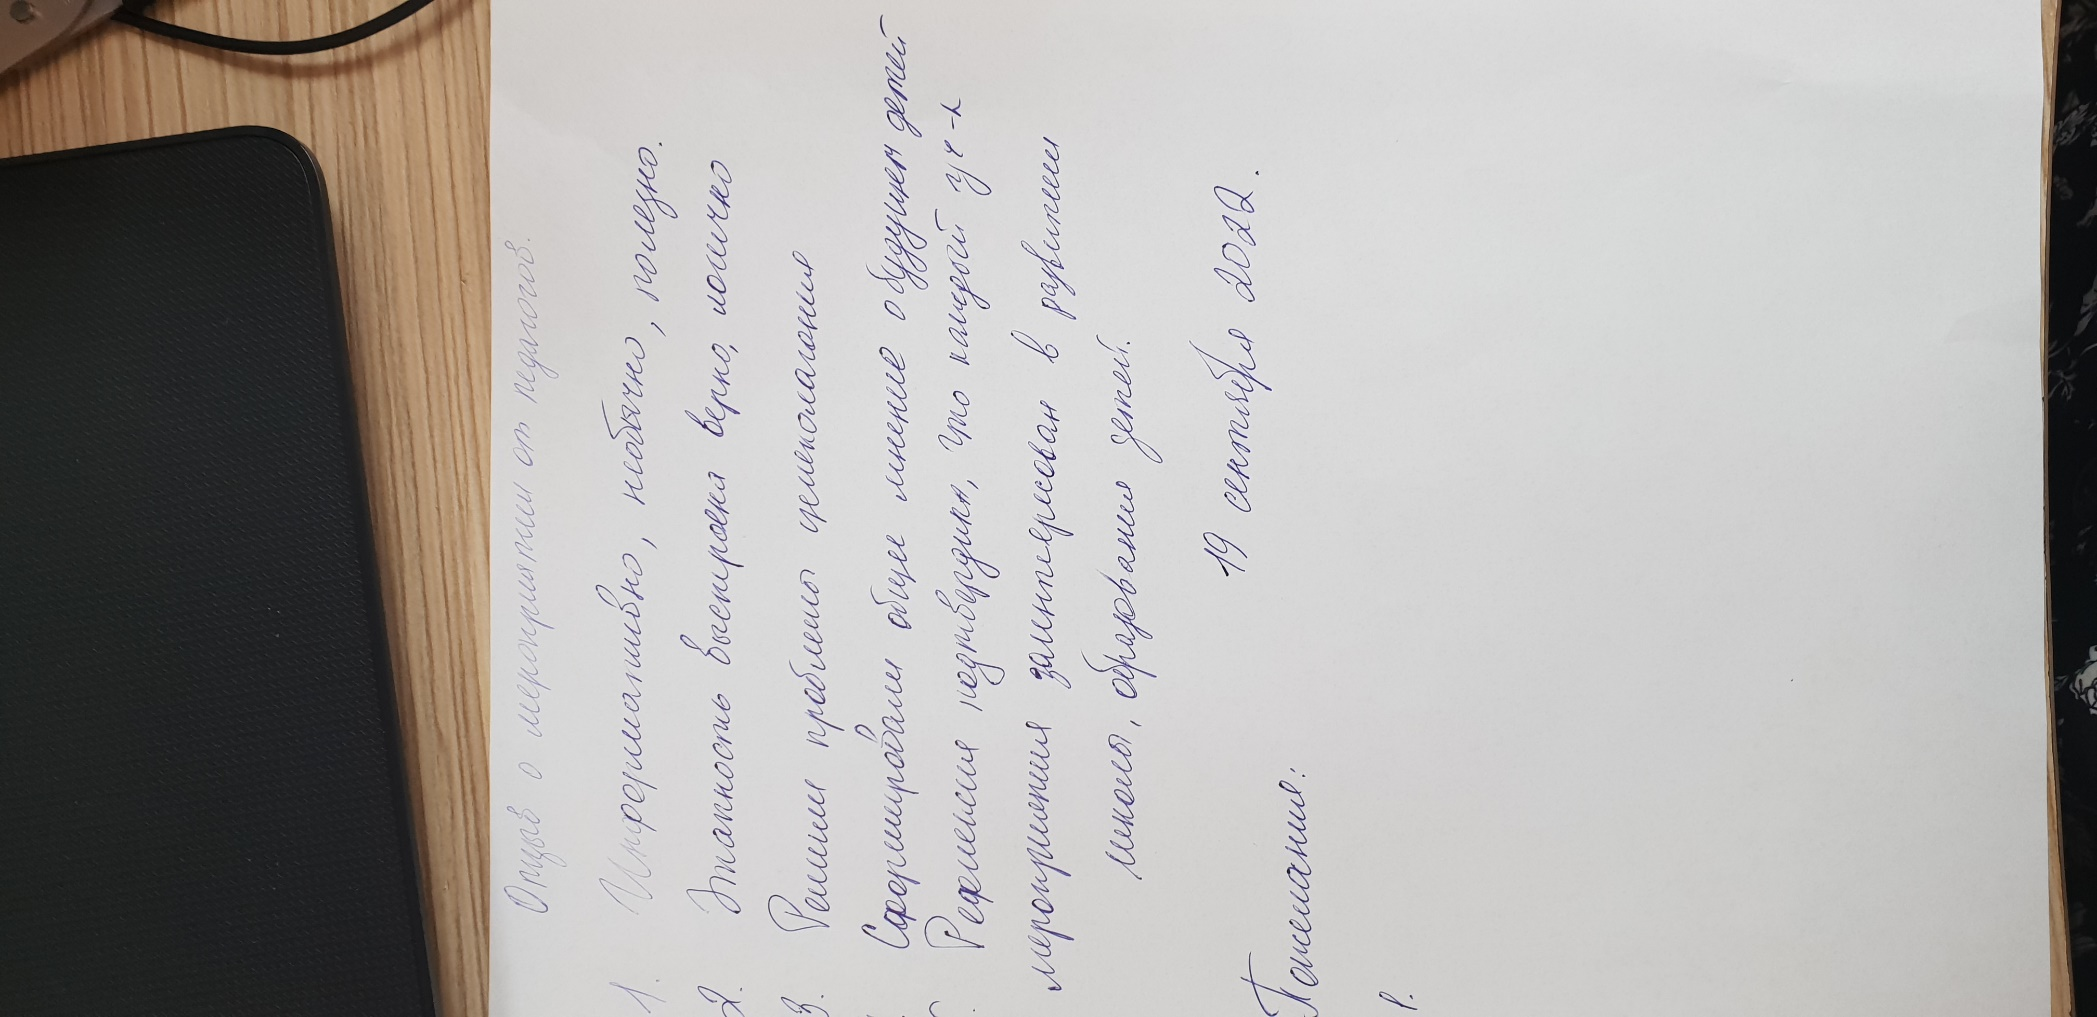 Отзыв о мероприятии от педагогов.
1. Информативно, необычно, полезно.
2. Этапность выстроена верно, логично
3. Решили проблемы целеполагания
Сформировали общее мнение о будущем детей
Рефлексия подтвердила, что каждый уч-к
мероприятия заинтересован в развитии
школы, образования детей.
19 сентября 2022.
Пожелания:
1.